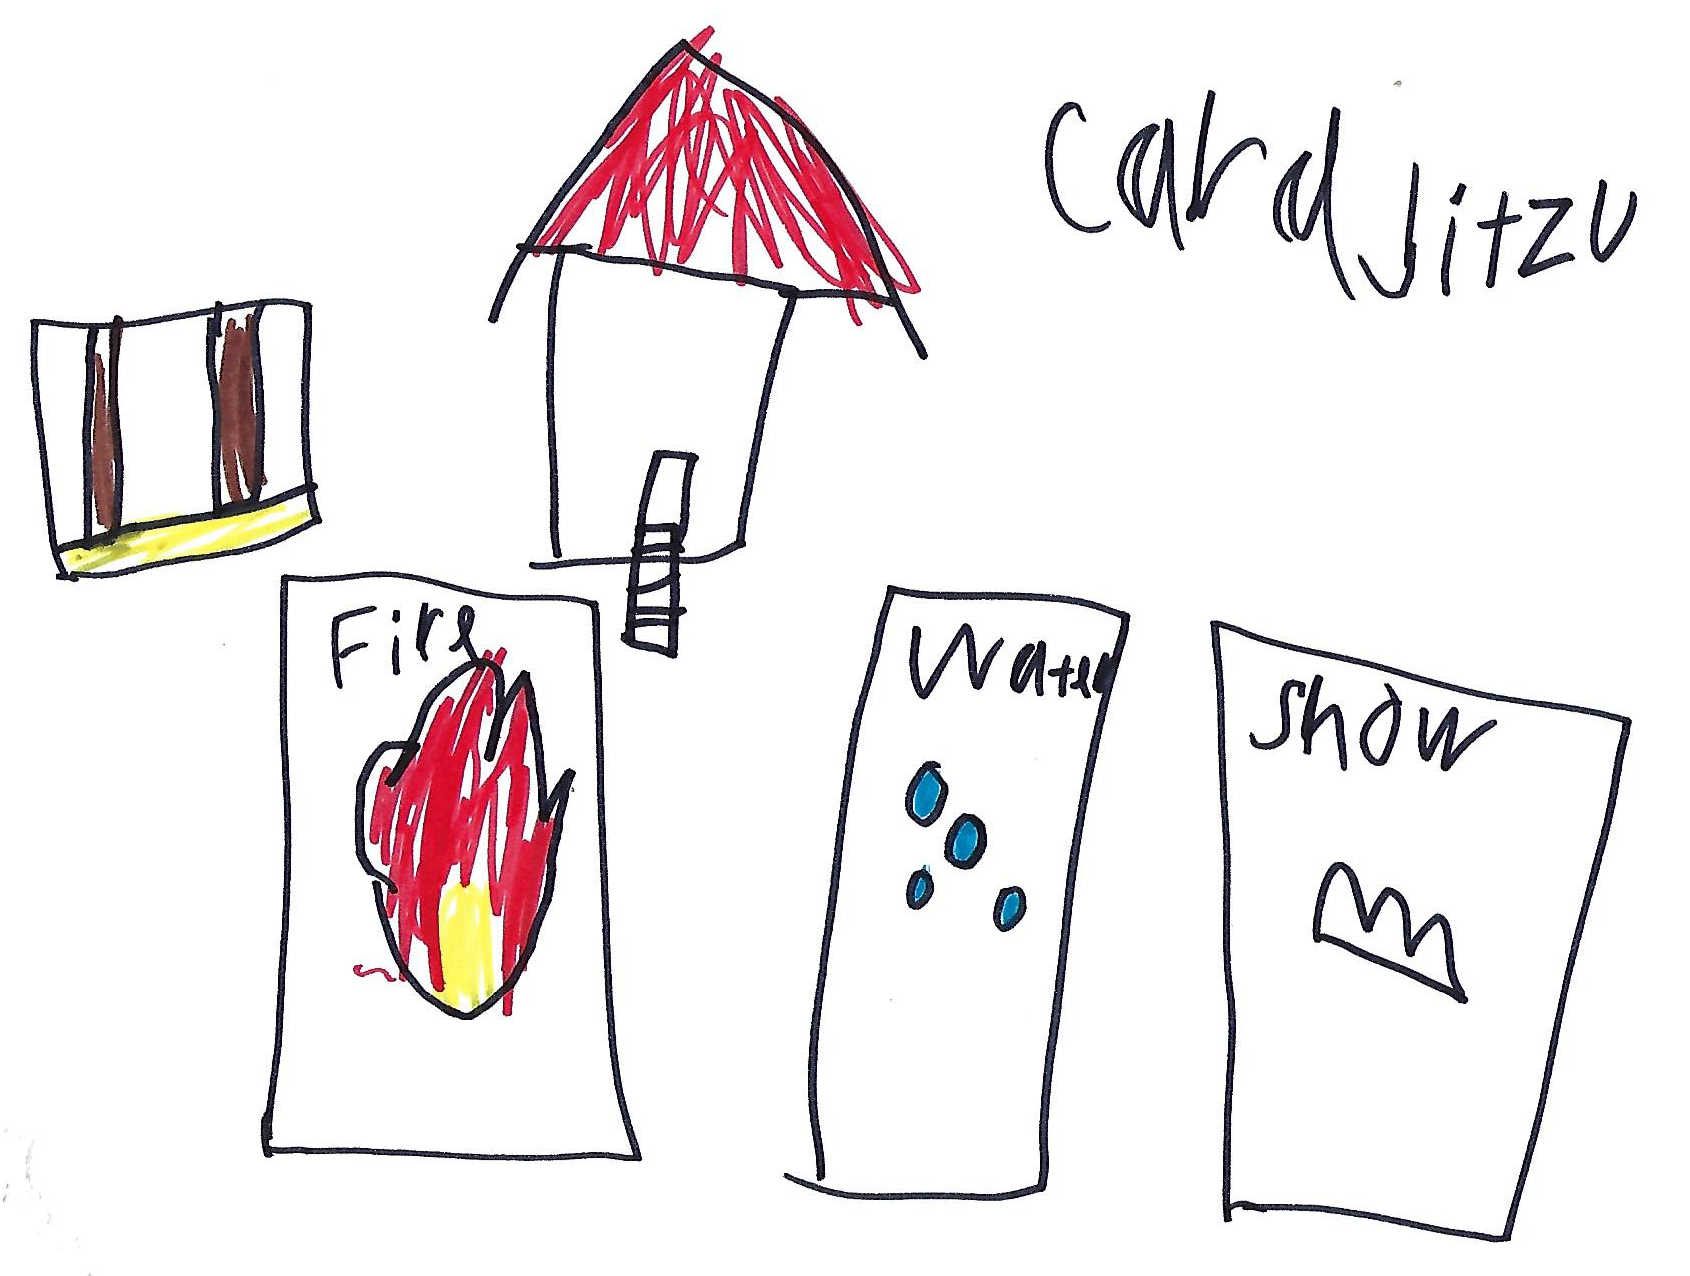 Card Jitzu
Fire
Water
Snow